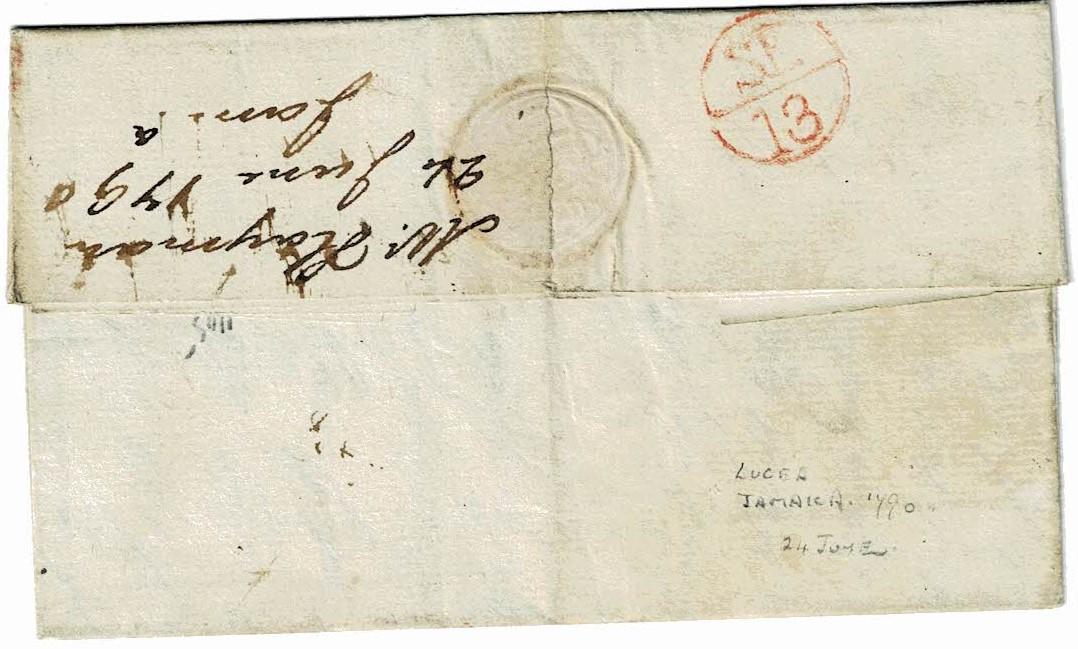 SE
13
Mr. Hayman
24 June 1790
Jam.a
LUCEA
JAMAICA. 1790
24 JUNE.